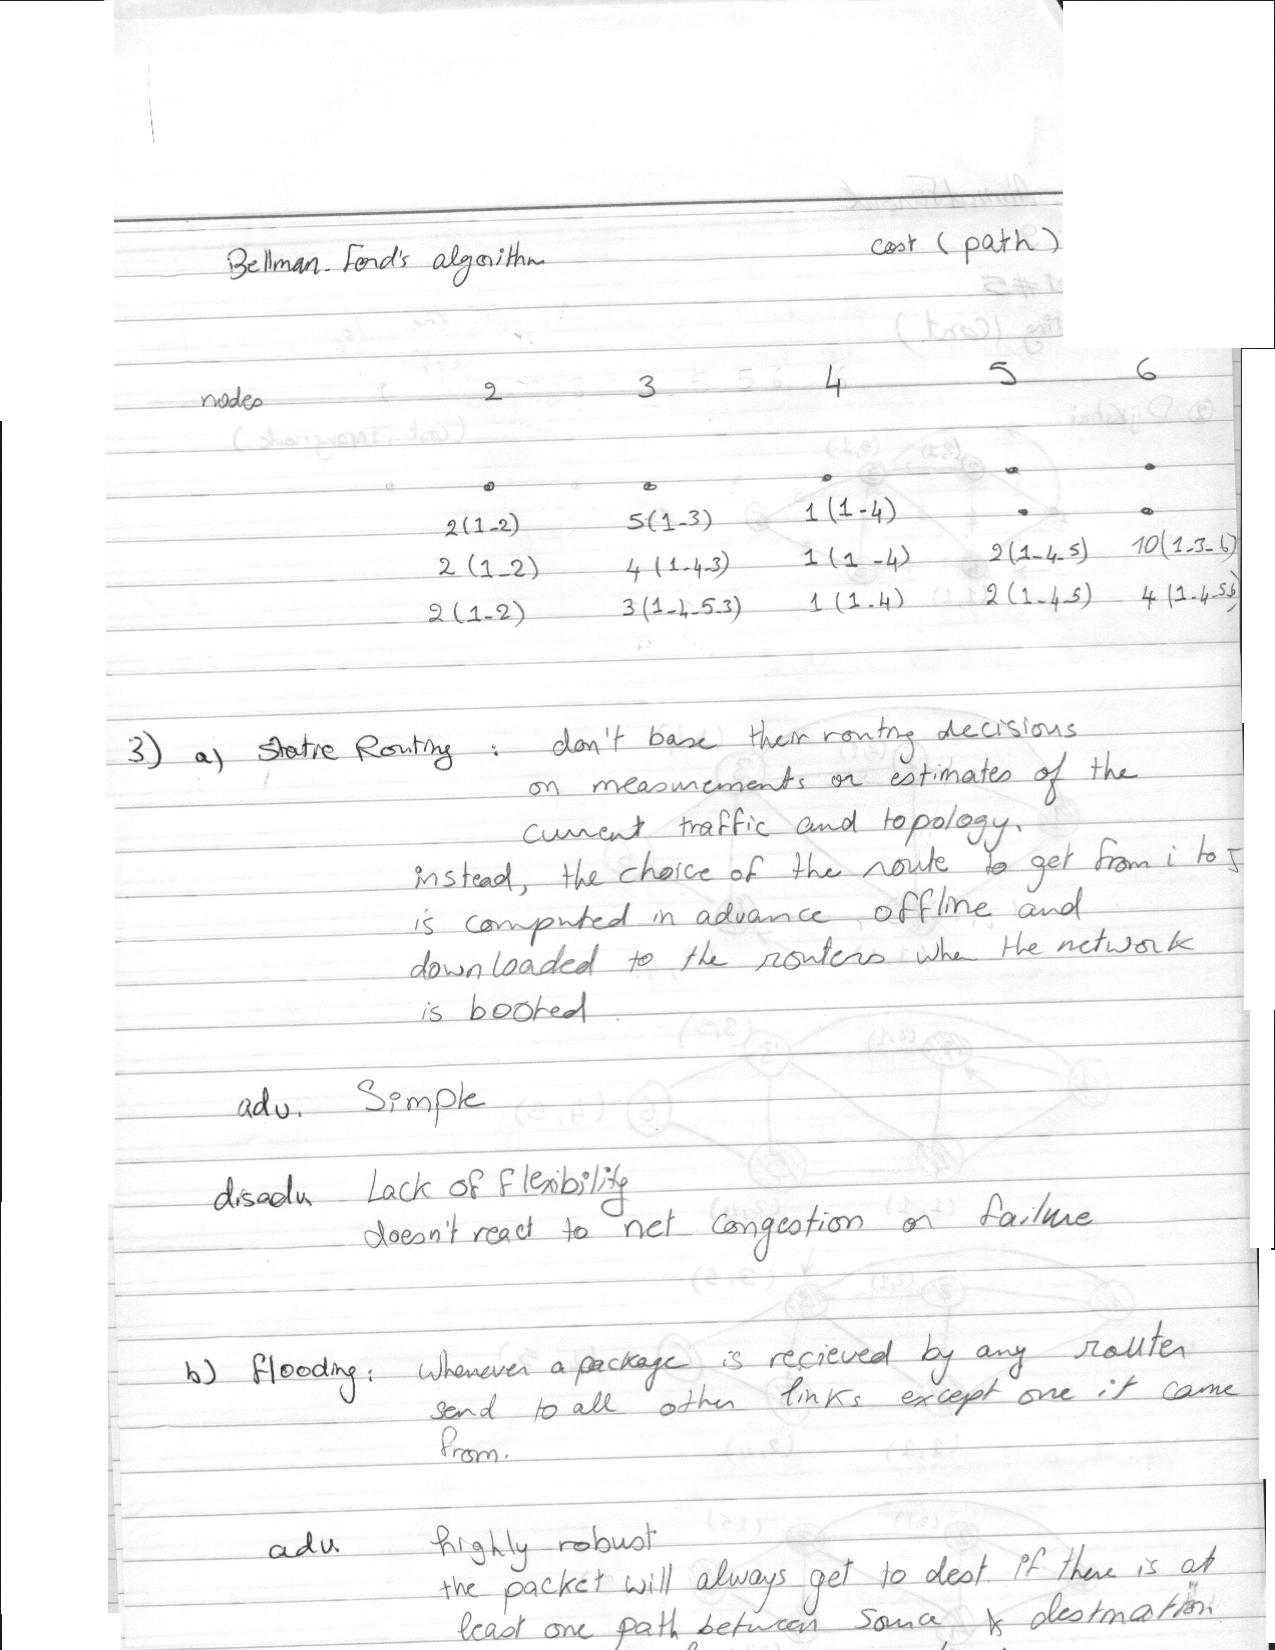 Bellman-Ford's algorithm cost (path)
nodes 2 3 4 5 6
. . . . .
2(1-2) 5(1-3) 1(1-4) . .
2(1-2) 4(1-4-3) 1(1-4) 2(1-4-5) 10(1-3-6)
2(1-2) 3(1-4-5-3) 1(1-4) 2(1-4-5) 4(1-4-5-6)
3) a) Static Routing : don't base their routing decisions
on measurements or estimates of the
current traffic and topology.
instead, the choice of the route to get from i to J
is computed in advance, offline and
downloaded to the routers when the network
is booted.
adv. Simple
disadv Lack of flexibility
doesn't react to net congestion or failure
b) flooding: Whenever a package is recieved by any router
send to all other links except one it came
from.
adv. highly robust
the packet will always get to dest. if there is at
least one path between source & destination